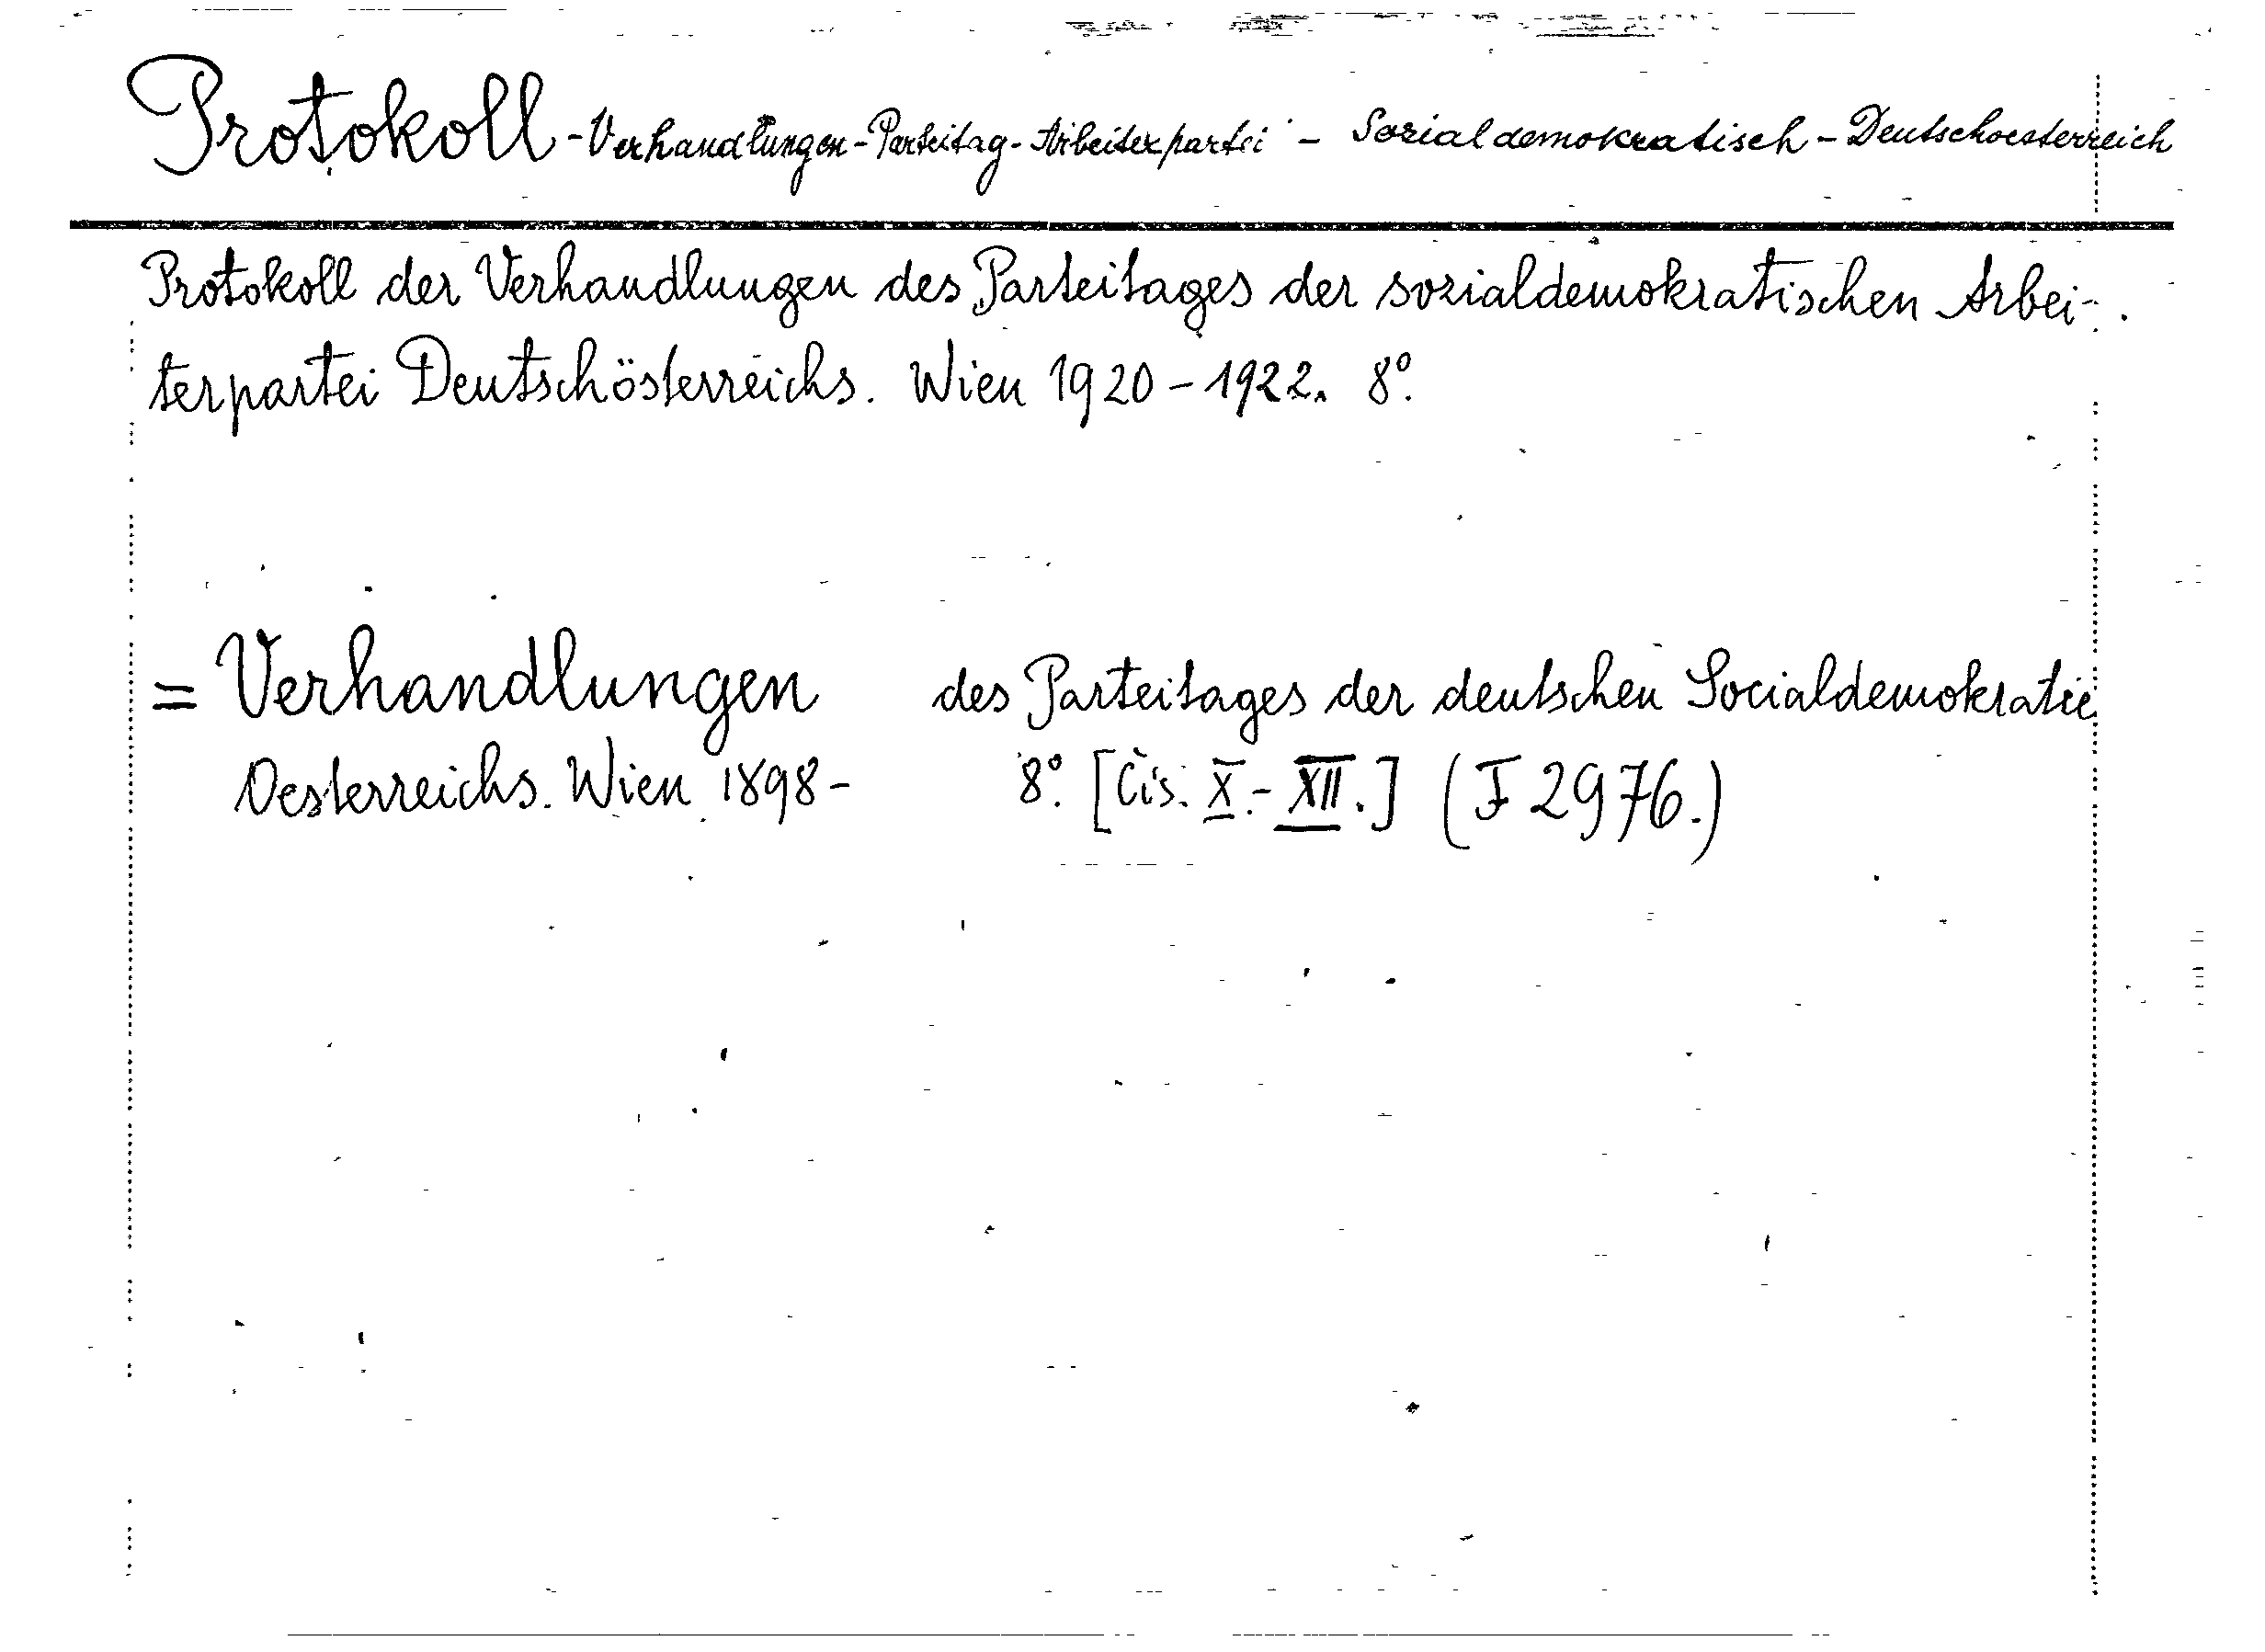 Protokoll - Verhandlungen - Parteitag - Arbeiterpartei - Sozialdemokratisch - Deutschoesterreich
Protokoll der Verhandlungen des Parteitages der sozialdemokratischen Arbei-
terpartei Deutschösterreichs. Wien 1920-1922. 8º.
= Verhandlungen des Parteitages der deutschen Socialdemokratie
Oesterreichs. Wien 1898- 8º. [Cis. X.-XII.] (F 2976.)